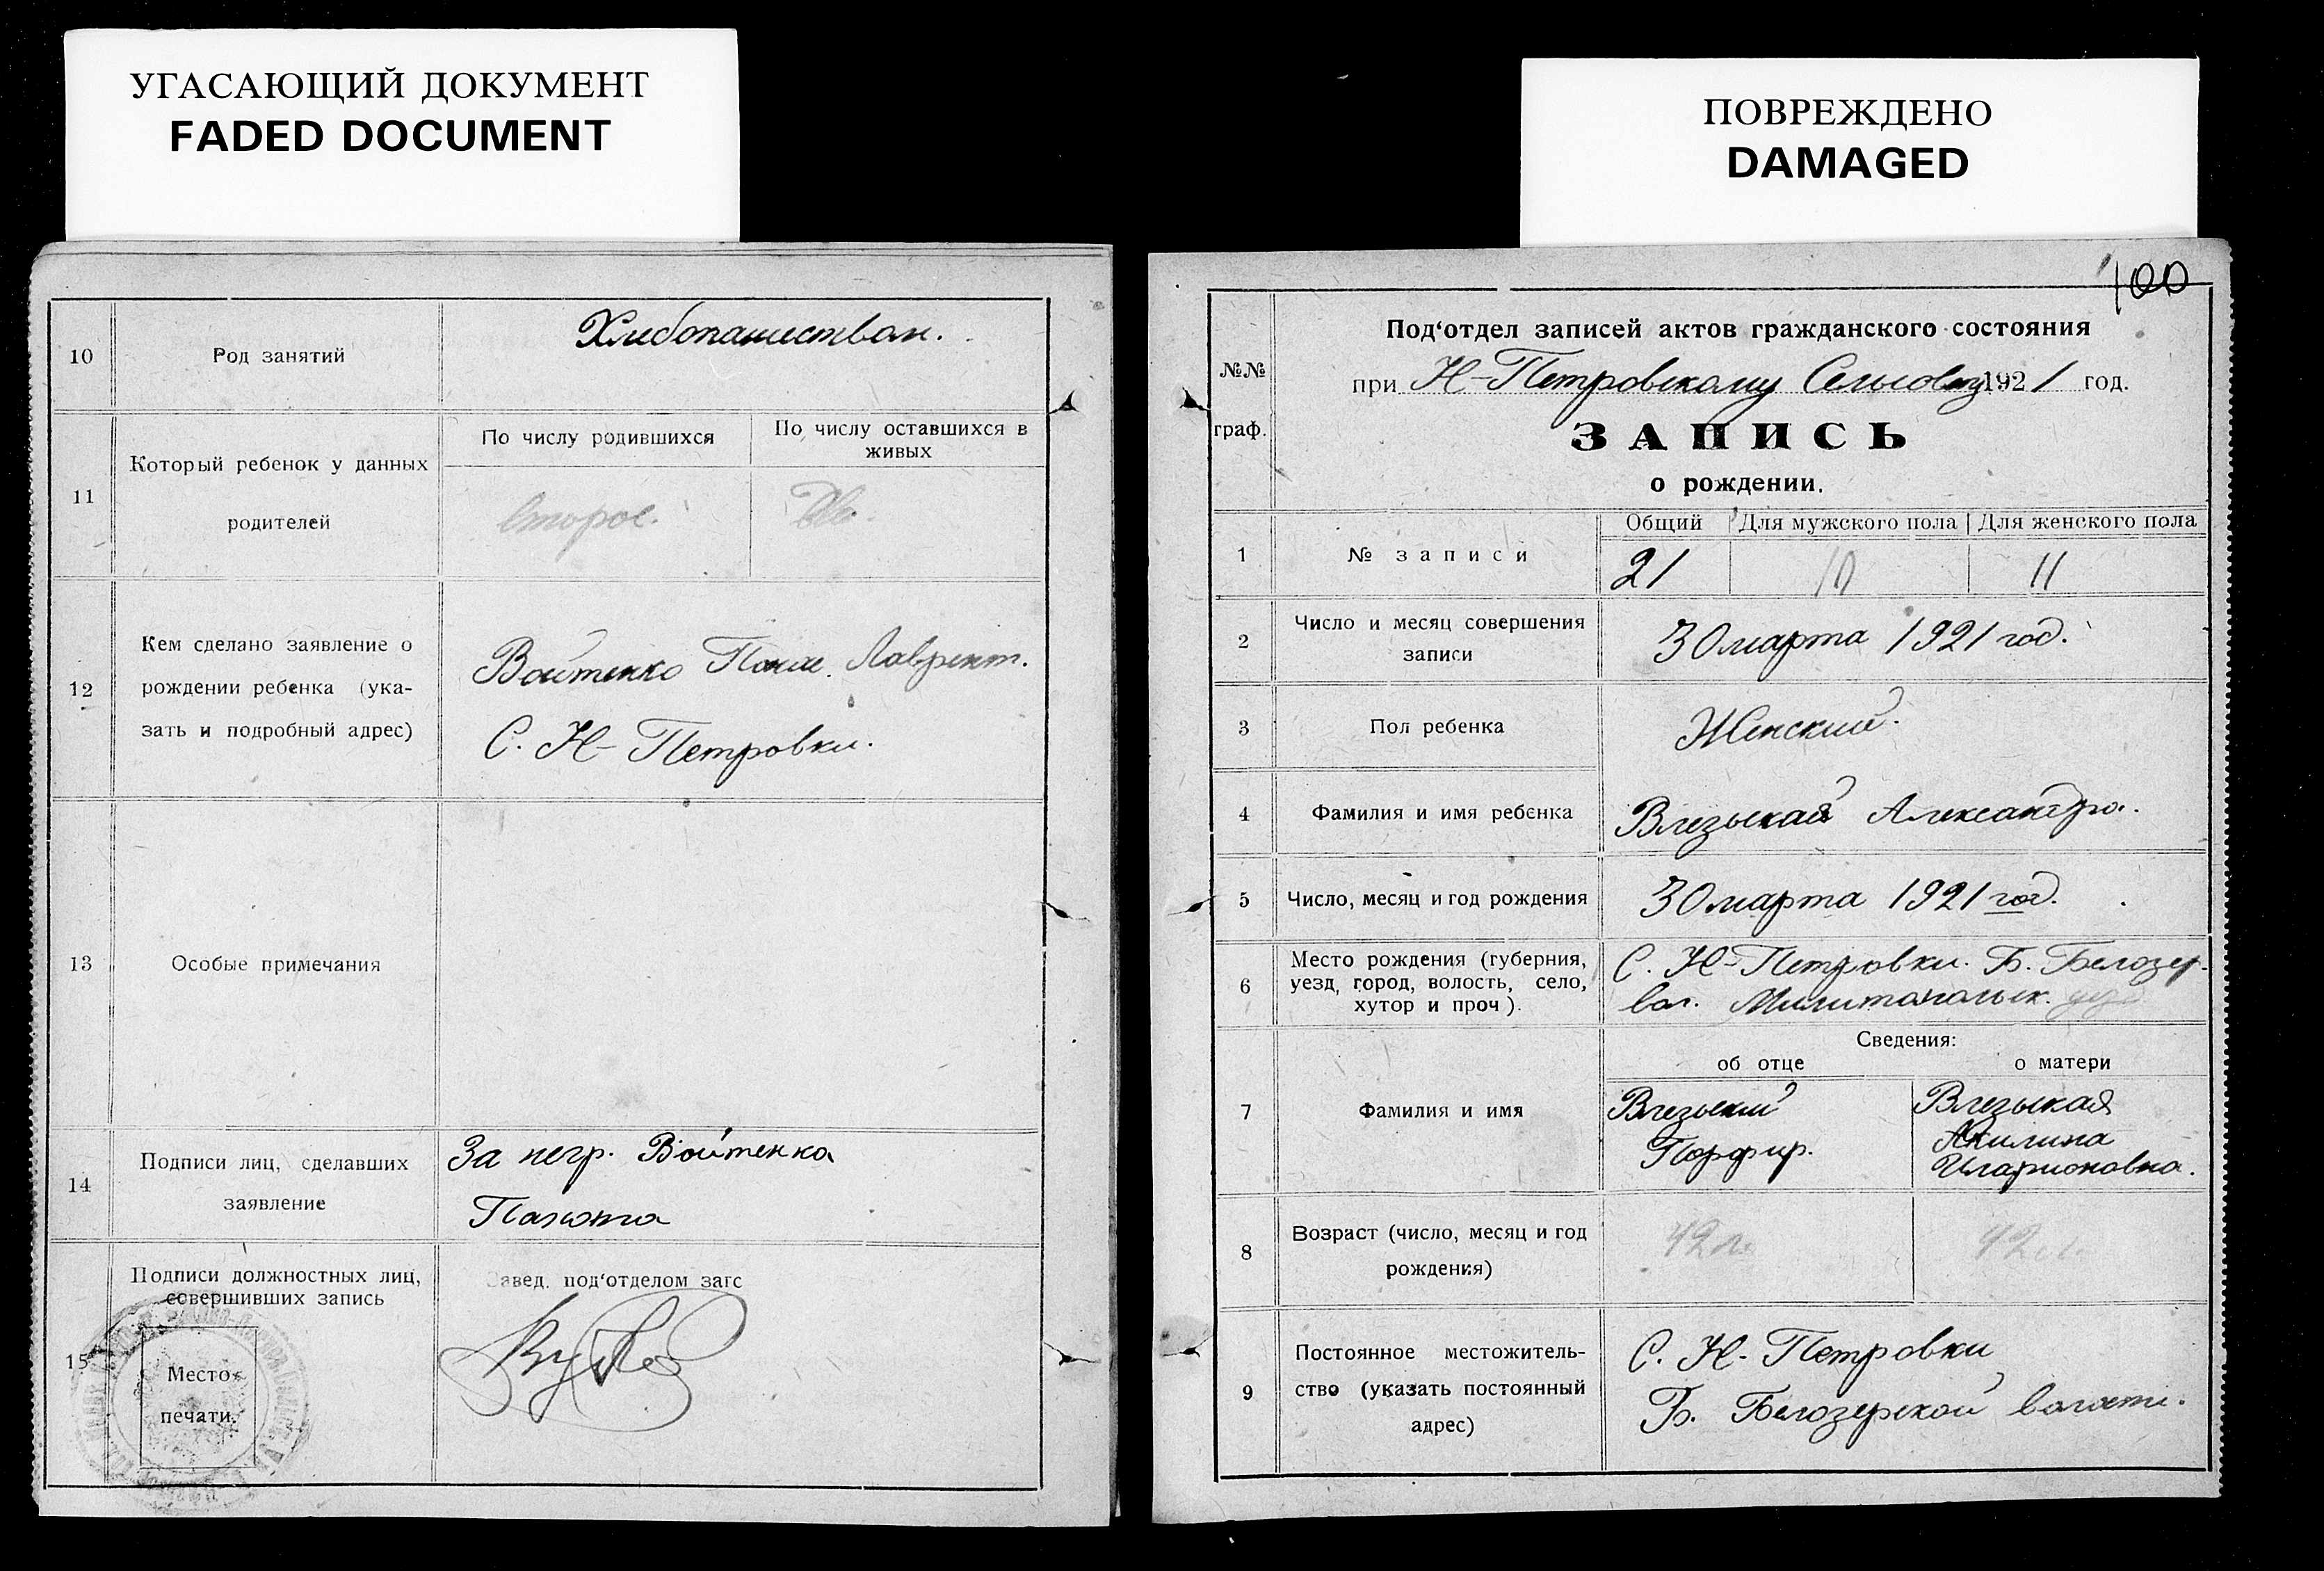 УГАСАЮЩИЙ ДОКУМЕНТ
FADED DOCUMENT
10
Род занятий
Хлебопашеством.
11
Который ребенок у данных
родителей
По числу родившихся
По числу оставшихся в
живых
второе.
12
Кем сделано заявление о
рождении ребенка (ука-
зать и подробный адрес)
Войтенко Лаврент.
С. Н-Петровки.
13
Особые примечания
14
Подписи лиц, сделавших
заявление
За негр. Войтенко
15
Подписи должностных лиц,
совершивших запись
Место
печати.
Завед. под‘отделом загс
ПОВРЕЖДЕНО
DAMAGED
100
№№
граф.
Под‘отдел записей актов гражданского состояния
при Н-Петровскому 1921 год.
ЗАПИСЬ
о рождении.
1
№ записи
Общий
Для мужского пола
Для женского пола
21
10
11
2
Число и месяц совершения
записи
30 марта 1921 год.
3
Пол ребенка
Женский.
4
Фамилия и имя ребенка
Влезькая Александра.
5
Число, месяц и год рождения
30 марта 1921 год.
6
Место рождения (губерния,
уезд, город, волость, село,
хутор и проч).
С. Н-Петровки. Б. Белозер.
вол. Мелитопольск. уезд
Сведения:
об отце
о матери
7
Фамилия и имя
Влезький
Порфир.
Влезькая
Акилина
Иларионовна.
8
Возраст (число, месяц и год
рождения)
42 л.
42 л.
9
Постоянное местожитель-
ство (указать постоянный
адрес)
С. Н-Петровки
Б. Белозерской волости.